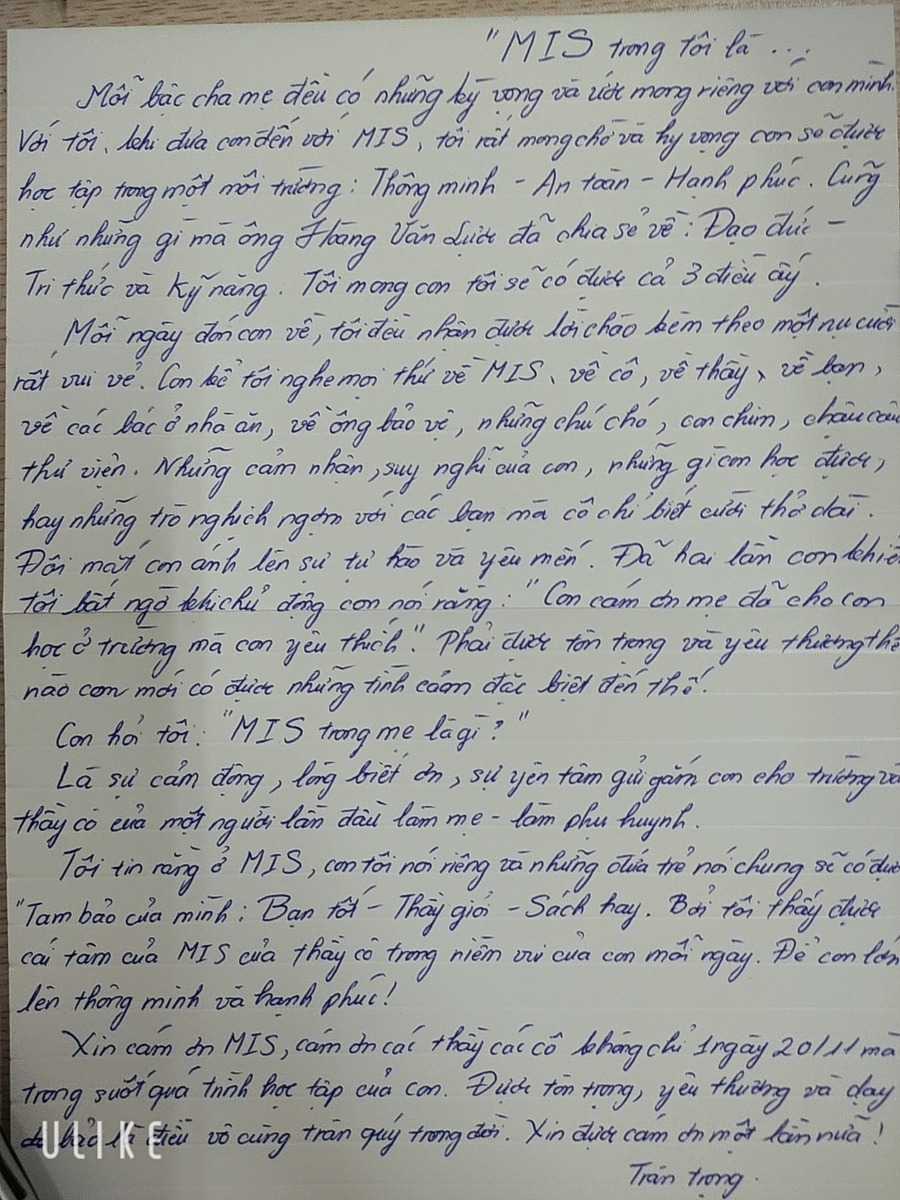 "MIS trong tôi là ...
Mỗi bậc cha mẹ đều có những kỳ vọng và ước mong riêng với con mình.
Với tôi, khi đưa con đến với MIS, tôi rất mong chờ và hy vọng con sẽ được
học tập trong một môi trường: Thông minh - An toàn - Hạnh phúc. Cũng
như những gì mà ông Hoàng Văn Lược đã chia sẻ về: Đạo đức -
Tri thức và Kỹ năng. Tôi mong con tôi sẽ có được cả 3 điều ấy.
Mỗi ngày đón con về, tôi đều nhận được lời chào kèm theo một nụ cười
rất vui vẻ. Con kể tôi nghe mọi thứ về MIS, về cô, về thầy, về bạn,
về các bác ở nhà ăn, về ông bảo vệ, những chú chó, con chim, chậu cây
thư viện. Những cảm nhận, suy nghĩ của con, những gì con học được,
hay những trò nghịch ngợm với các bạn mà cô chỉ biết cười thở dài.
Đôi mắt con ánh lên sự tự hào và yêu mến. Đã hai lần con khiến
tôi bất ngờ khi chủ động con nói rằng: "Con cám ơn mẹ đã cho con
học ở trường mà con yêu thích". Phải được tôn trọng và yêu thương thế
nào con mới có được những tình cảm đặc biệt đến thế.
Con hỏi tôi: "MIS trong mẹ là gì?"
Là sự cảm động, lòng biết ơn, sự yên tâm gửi gắm con cho trường và
thầy cô của một người lần đầu làm mẹ - làm phụ huynh.
Tôi tin rằng ở MIS, con tôi nói riêng và những đứa trẻ nói chung sẽ có được
"Tam bảo của mình: Bạn tốt - Thầy giỏi - Sách hay. Bởi tôi thấy được
cái tâm của MIS của thầy cô trong niềm vui của con mỗi ngày. Để con lớn
lên thông minh và hạnh phúc!
Xin cám ơn MIS, cám ơn các thầy các cô không chỉ 1 ngày 20/11 mà
trong suốt quá trình học tập của con. Được tôn trọng, yêu thương và dạy
bảo là điều vô cùng trân quý trong đời. Xin được cám ơn một lần nữa!
Trân trọng.
ULIKE